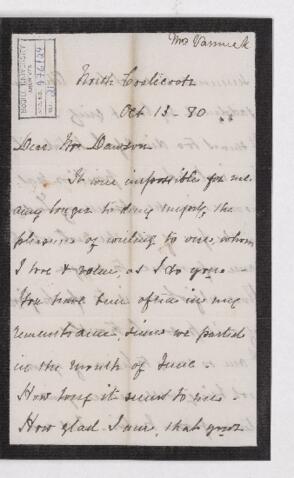 Mrs Vanneck
McGILL UNIVERSITY
ARCHIVES
North Coaticook
Oct 13 - 80
Dear Mrs Dawson
It was impossible for me
any longer to deny myself, the
pleasure of writing to one whom
I love & value, as I do you.
You have been often in my
remembrance, since we parted
in the month of June.
How long it seems to me.
How glad I am, that your